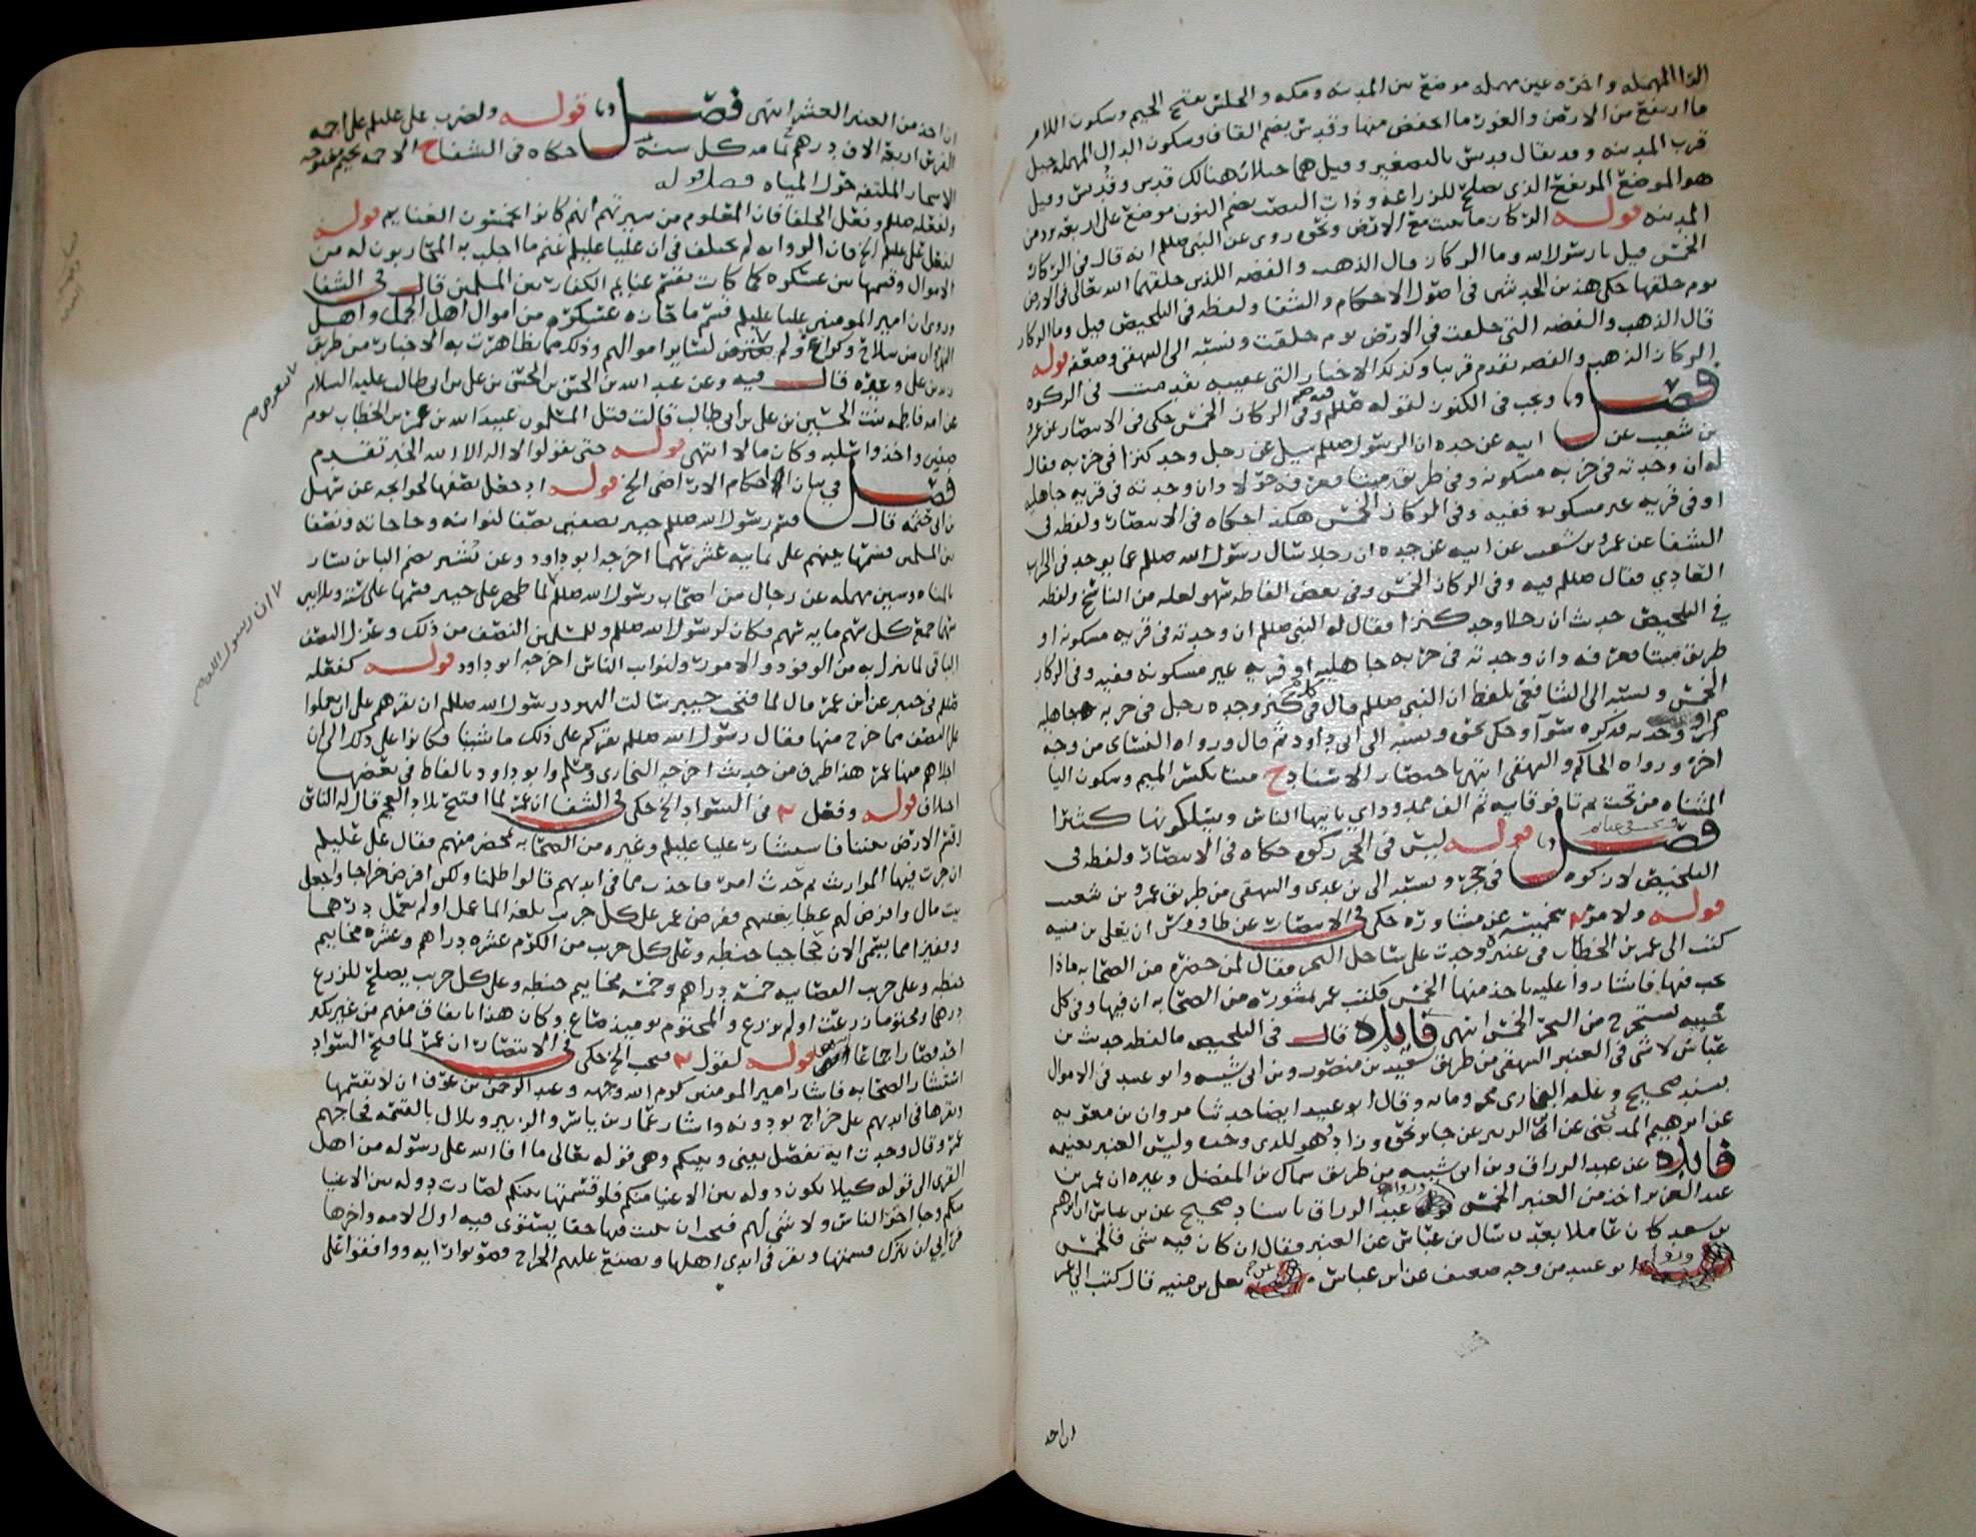 الرا المهمله واخره عين مهمله موضع بين المدينه ومكه والجلس بفتح الجيم وسكون اللام
ما ارتفع من الارض والغور ما انخفض منها وقدس بضم القاف وسكون الدال المهمله جبل
قرب المدينه وقد يقال قديس بالتصغير وقيل هما جبلان هنالك قدس وقديس وقيل
هو الموضع المرتفع الذي يصلح للزراعه وذات النصب بضم النون موضع على اربعة برد من
المدينه قوله الركاز ما نبت مع الارض ونحوه روى عن النبي صللم انه قال في الركاز
الخمس قيل يا رسول الله وما الركاز قال الذهب والفضه اللذين خلقهما الله تعالى في الارض
يوم خلقها حكى هذين الحديثين في اصول الاحكام والشفا ولفظه في التلخيص قيل وما الركاز
قال الذهب والفضه التي خلقت في الارض يوم خلقت ونسبه الى البيهقي وضعفه قوله
الركاز الذهب والفضه تقدم قريبا وكذلك الاخبار التي عقيبه تقدمت في الزكوه
فصل ويجب في الكنوز لقوله صللم وفي الركاز الخمس حكى في الانتصار عن عمرو
بن شعيب عن ابيه عن جده ان الرسول صللم سيل عن رجل وجد كنزا في خربه فقال
له ان وجدته في خربه مسكونه وفي طريق ميتا فعرفه حولا وان وجدته في قريه جاهليه
او في قريه غير مسكونه ففيه وفي الركاز الخمس هكذا حكاه في الانتصار ولفظه في
الشفا عن عمرو بن شعيب عن ابيه عن جده ان رجلا سال رسول الله صللم عما يوجد في الخراب
العادي فقال صللم فيه وفي الركاز الخمس وفي بعض الفاظه سهو لعله من الناسخ ولفظه
في التلخيص حديث ان رجلا وجد كنزا فقال له النبي صللم ان وجدته في قريه مسكونه او
طريق ميتا فعرفه وان وجدته في خربه جاهليه او قريه غير مسكونه ففيه وفي الركاز
الخمس ونسبه الى الشافعي بلفظ ان النبي صللم قال في كنز وجده رجل في خربه جاهليه
ان وجدته فذكره سوآ وحكى نحوه ونسبه الى ابي داود ثم قال ورواه النسائ من وجه
اخر ورواه الحاكم والبيهقي انتهى باختصار الاسناد ح ميتا بكسر الميم وسكون اليا
المثناه من تحت ثم تا فوقانيه ثم الف ممدوداي ياتيها الناس ويسلكونها كثيرا
فصل قوله ليس في الحجر زكوه حكاه في الانتصار ولفظه في
التلخيص لا زكوه في حجر ونسبه الى بن عدي والبيهقي من طريق عمرو بن شعيب
قوله ولامر بتخميسه عن مشاوره حكى في الانتصار عن طاووس ان يعلى بن منيه
كتب الى عمر بن الخطاب في عنبره وجدت على ساحل البحر فقال لمن حضره من الصحابه ماذا
يجب فيها فاشاروا عليه ياخذ منها الخمس فكتب عمر بمشورة من الصحابه ان فيها وفي كل
حبيه تستخرج من البحر الخمس انتهى فايده قال في التلخيص ما لفظه حديث بن
عباس لا شي في العنبر البيهقي من طريق سعيد بن منصور وبن ابي شيبه وابو عبيد في الاموال
بسند صحيح وعلقه البخاري مجزوما به وقال ابو عبيد ايضا حدثنا مروان بن معويه
عن ابرهيم المديني عن ابي الزبير عن جابر نحوه وزاد هو للذي وجده وليس العنبر بغنيمه
فايده عن عبد الرزاق وبن ابي شيبه من طريق سماك بن المفضل وغيره ان عمر بن
عبد العزيز اخذ من العنبر الخمس وروا عبد الرزاق باسناد صحيح عن بن عباس ان ابرهيم
بن سعد كان عاملا بعدن سال بن عباس عن العنبر فقال ان كان فيه شي فالخمس
وروا ابو عبيد من وجه ضعيف عن ابن عباس عن يعلى بن منيه قال كتب الي عمر
ان احد
ان اخذ من العنبر العشر انتهى فصل قوله ولضرب علي عليلم على اجمه
الفرس اربعة الاف درهم ثمانه كل سنة حكاه في الشفا ح الاجمه بجيم مفتوحه
الاشجار الملتفه حول المياه فصل قوله
ولفعله صللم وفعل الخلفا فان المعلوم من سيرتهم انهم كانوا يخمسون الغنايم قوله
لفعل علي عليلم الخ فان الروايه لم تختلف في ان عليا عليلم غنم ما اجلب به المحاربون له من
الاموال وقسمها بين عسكره كما كانت تقسم غنايم الكفار بين المسلمين قال في الشفا
وروي ان امير المومنين عليا عليلم قسم ما حازه عسكره من اموال اهل الجمل واهل
النهروان من سلاح وكراع ولم يعترض لسايو اموالهم وذلك مما تظاهرت به الاخبار من طريق
زيد بن علي وغيره قال فيه وعن عبد الله بن الحسن بن الحسن بن علي بن ابي طالب عليه السلام
عن امه فاطمه بنت الحسين بن علي بن ابي طالب قالت قتل المسلمون عبيد الله بن عمر بن الخطاب يوم
صفين واخذوا سلبه وكان مالا انتهى قوله حتى يقولوا لا اله الا الله الخبر تقدم
فصل في بيان احكام الاراضي الخ قوله اذ جعل نصفها لحوايجه عن سهل
بن ابي حثمه قال قسم رسول الله صللم خيبر نصفين نصفا لنوايبه وحاجاته ونصفا
بين المسلمين قسمها بينهم على ثمانيه عشر سهما اخرجه ابو داود وعن بشير بضم البا بن يسار
بالمثناه وسين مهمله عن رجال من اصحاب رسول الله صللم لما ظهر على خيبر قسمها على ستة وثلاثين
سهما جمع كل سهم مايه سهم فكان لرسول الله صللم وللمسلمين النصف من ذلك وعزل النصف
الباقي لما ينزل به من الوفود والامور ولنوايب الناس اخرجه ابو داود قوله كفعله
صللم في خيبر عن ابن عمر قال لما فتحت خيبر سالت اليهود رسول الله صللم ان يقرهم على ان يعملوا
على النصف مما خرج منها فقال رسول الله صللم نقركم على ذلك ما شينا فكانوا على ذلك الى ان
اجلاهم منها عمر هذا طرف من حديث اخرجه البخاري ومسلم وابو داود بالفاظ في بعضها
اختلاف قوله وفعل في السواد الخ حكى في الشفا ان عمر لما افتتح بلاد العجم قال له الناس
اقسم الارض بيننا فاستشار عليا عليلم وغيره من الصحابه بمحضر منهم فقال علي عليلم
ان جرت فيها المواريث ثم حدث امر فاخذت مما في ايديهم قالوا ظلمنا ولكن افرض خراجا واجعل
بيت مال وافرض لهم عطا يغنيهم ففرض عمر على كل جريب بلغه الما عمل او لم يعمل درهما
وقفيزا مما يسمى الان حجاجيا حنطه وعلى كل جريب من الكرم عشره دراهم وعشره مخاتيم
حنطه وعلى جريب القصابيه خمسة دراهم وخمسة مخاتيم حنطه وعلى كل جريب يصلح للزرع
درهما ومختوما زرعت او لم تزرع والمختوم يوميذ صاع وكان هذا باتفاق منهم من غير نكير
احد فصار اجماعا انتهى قوله لقول فيجب الخ حكى في الانتصار ان عمر لما فتح السواد
استشار الصحابه فاشار امير المومنين كرم الله وجهه وعبد الرحمن بن عوف ان لا يقسمها
ويقرها في ايديهم على خراج يودونه واشار عمار بن ياسر والزبير وبلال بالقسمه فحاجهم
عمر وقال وجدت ايه تفصل بيني وبينكم وهي قوله تعالى ما افا الله على رسوله من اهل
القرى الى قوله كيلا يكون دوله بين الاغنيا منكم فلو قسمتها بينكم لصارت دوله بين الاغنيا
منكم وجا اخر الناس ولا شي لهم فيجب ان يثبت فيها حقا يستوي فيه اول الامه واخرها
فراى ان يترك قسمتها وتقر في ايدي اهلها ويضع عليهم الخراج فصوبوا رايه ووافقوا على
ان رسول الله